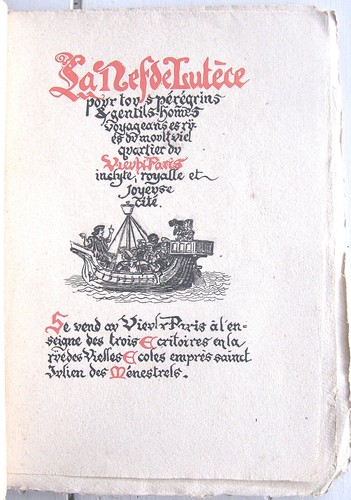 La Nef de Lutèce
povr tovs pérégrins
& gentils-homẽs
voyageans es rṽ-
es dv movlt viel
qvartier dv
Vievlx Paris
inclyte, royalle et
joyevse
cité.
Se vend av Vievlx Paris à l'en-
seigne des trois Escritoires en la
rṽe des Vielles Escoles emprès sainct
Jvlien des Ménestrels.